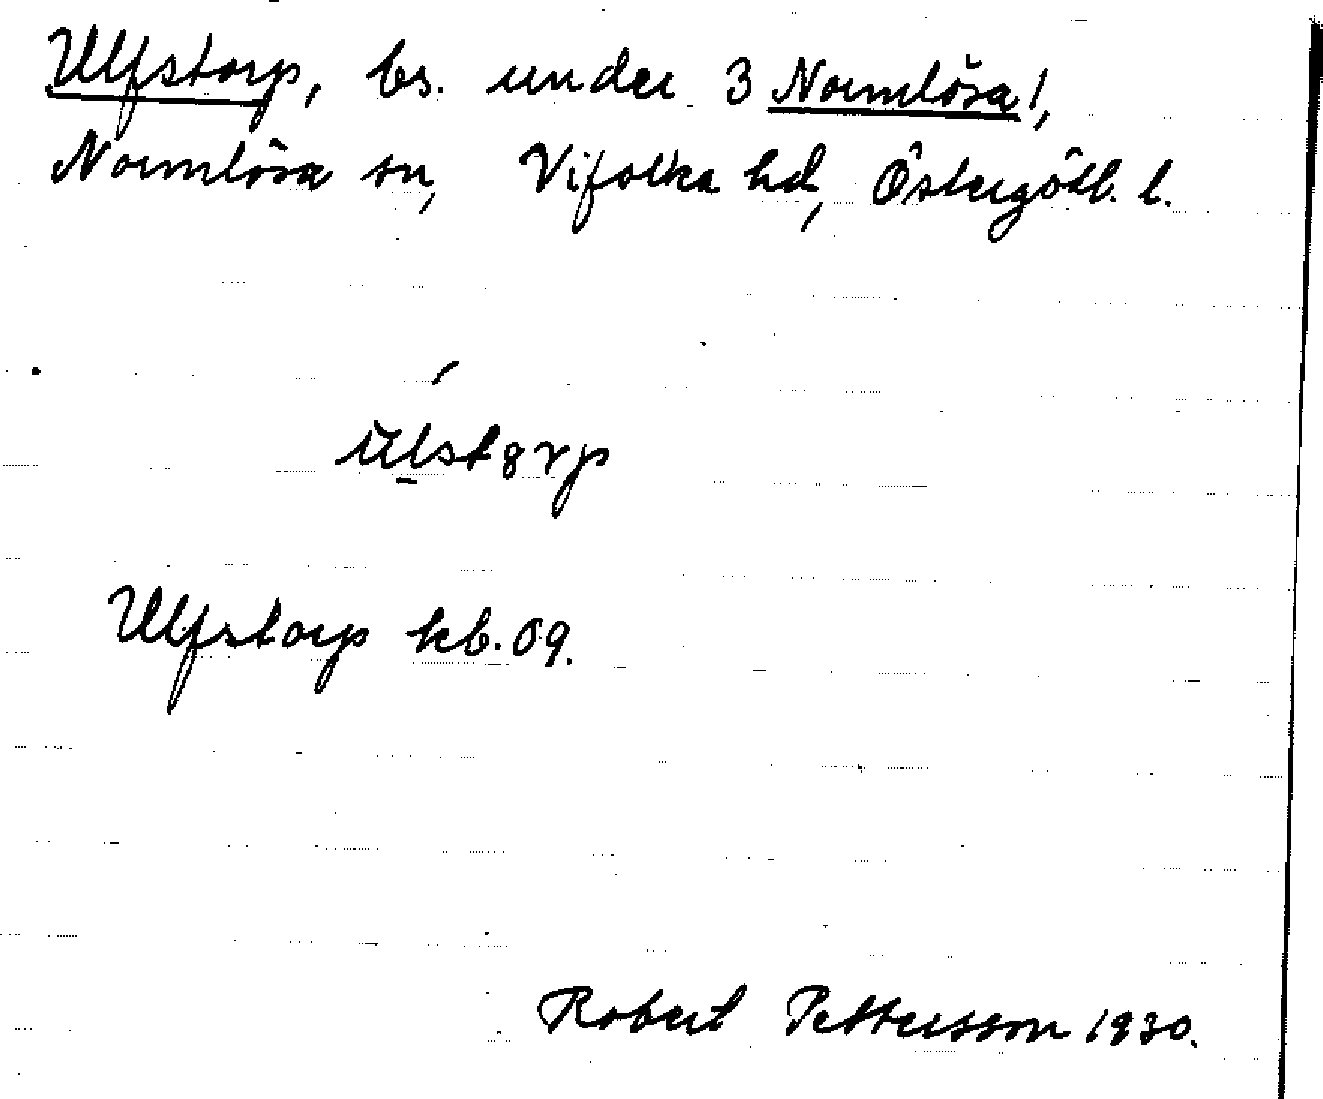 Ulfstorp, bs. under 3 Normlösa!,
Normlösa sn, Vifolka hd, Östergötl. l.
ùlstȣrp
Ulfstorp kb. 09.
Robert Pettersson 1930.